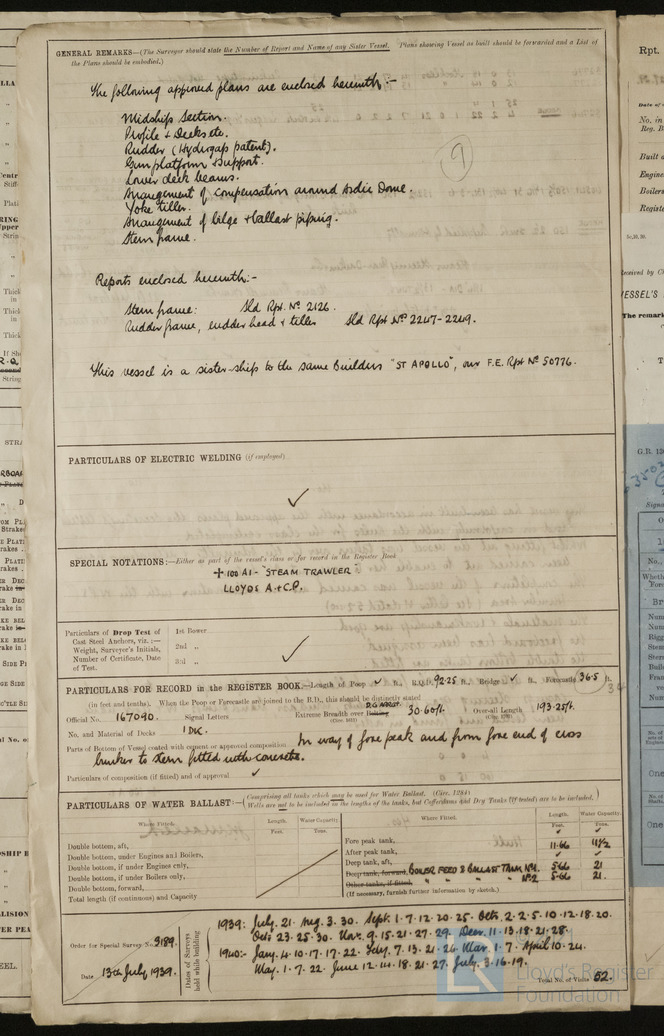 GENERAL REMARKS—(The Surveyor should state the Number of Report and Name of any Sister Vessel. Plans showing Vessel as built should be forwarded and a List of
the Plans should be embodied.)
The following approved plans are enclosed herewith:-
Midship Section.
Profile & Decks etc.
Rudder (Hydrogap patent).
Gun platform & support.
Lower deck beams.
Arrangement of compensation around Asdic Dome.
Yoke tiller.
Arrangement of bilge & ballast piping.
Stem frame.
9
Reports enclosed herewith:-
Stern frame: Sld Rpt. No. 2126.
Rudder frame, rudder head & tiller Sld Rpt Nos 2247-2249.
This vessel is a sister-ship to the same builders "ST APOLLO", our F.E. Rpt No 50776.
PARTICULARS OF ELECTRIC WELDING (if employed)
SPECIAL NOTATIONS:—Either as part of the vessel's class or for record in the Register Book
+100 A1 - "STEAM TRAWLER"
LLOYDS A.&C.P.
Particulars of Drop Test of
Cast Steel Anchors, viz.:—
Weight, Surveyor's Initials,
Number of Certificate, Date
of Test.
1st Bower
2nd „
3rd „
PARTICULARS FOR RECORD in the REGISTER BOOK.—Length of Poop ✓ ft., R.Q.D. 92·25 ft., Bridge ✓ ft., Forecastle 36·5 ft.
(in feet and tenths). When the Poop or Forecastle are joined to the B.D., this should be distinctly stated
Official No. 167090. Signal Letters Extreme Breadth over 30·60ft. Over-all Length 193·25ft.
No. and Material of Decks 1 Dk.
Parts of Bottom of Vessel coated with cement or approved composition In way of fore peak and from fore end of cross
bunker to stern fitted with concrete.
Particulars of composition (if fitted) and of approval ✓
PARTICULARS OF WATER BALLAST:—(Comprising all tanks which may be used for Water Ballast. (Circ. 1284)
Wells are not to be included in the lengths of the tanks, but Cofferdams and Dry Tanks (if tested) are to be included.)
Where Fitted. Length. Feet. Water Capacity. Tons.
Double bottom, aft,
Double bottom, under Engines and Boilers,
Double bottom, if under Engines only,
Double bottom, if under Boilers only,
Double bottom, forward,
Total length (if continuous) and Capacity
Where Fitted. Length. Feet. Water Capacity. Tons.
Fore peak tank, ✓ ✓
After peak tank, 11·66 11½
Deep tank, aft, ✓ ✓
Deep tank, forward, BOILER FEED & BALLAST TANK No1. 5·66 21
Other tanks, if fitted, " " " " No2 5·66 21.
(If necessary, furnish further information by sketch.)
Order for Special Survey No. 3189.
Date 13th July 1939.
Dates of Surveys held while building
1939: July. 21. Aug. 3. 30. Sept. 1. 7. 12. 20. 25. Octr. 2. 2. 5. 10. 12. 18. 20.
Octr 23. 25. 30. Nov. 9. 15. 21. 27. 29. Decr. 11. 13. 18. 21. 28.
1940:- Jany. 4. 10. 17. 17. 22. Feby. 7. 13. 21. 26. Mar. 1. 7. April 10. 24.
May. 1. 7. 22. June 12. 14. 18. 21. 27. July. 3. 16. 19.
Total No. of Visits 62.
Lloyd's Register
Foundation